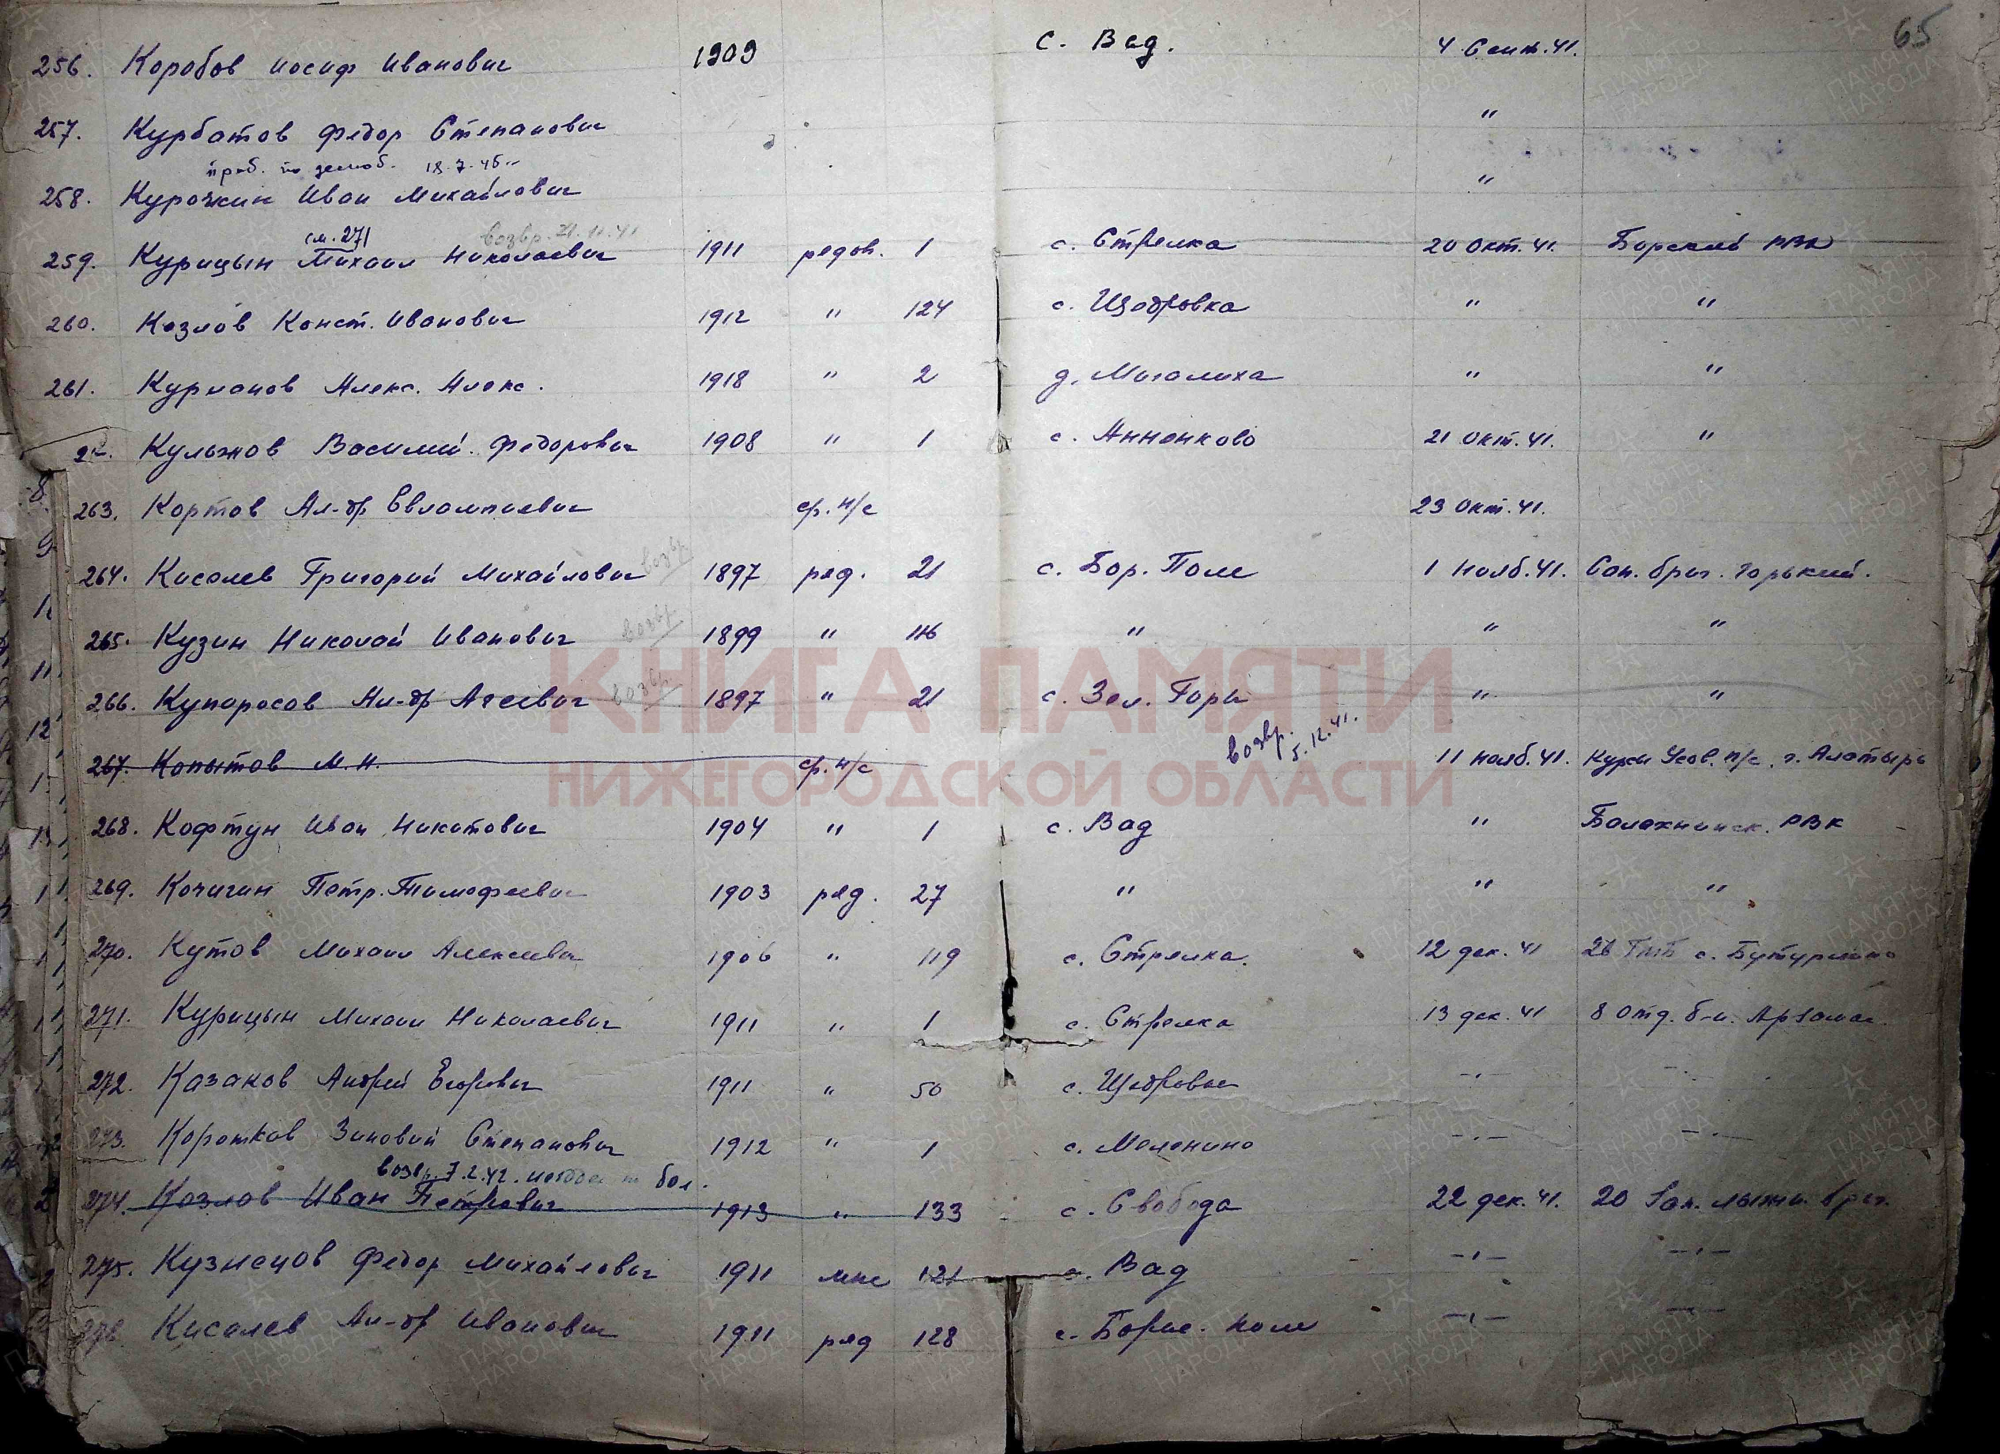 65
256. Коробов Иосиф Иванович 1909 с. Вад. 4 Сент. 41.
257. Курбатов Федор Степанович "
приб. по демоб. 18.7.45
258. Курочкин Иван Михайлович "
см. 271 возвр. 21.11.41
259. Курицын Михаил Николаевич 1911 рядов. 1 с. Стрелка 20 окт. 41. Борский РВК
260. Козлов Конст. Иванович 1912 " 124 с. Щедровка " "
261. Курманов Алекс. Алекс. 1918 " 2 д. Магалиха " "
Кульков Василий Федорович 1908 " 1 с. Анненково 21 окт. 41. "
263. Кортов Ал-др Евлампиевич ср. н/с 23 окт. 41.
264. Киселев Григорий Михайлович возвр. 1897 ряд. 21 с. Бор. Поле 1 нояб. 41. Сап. бриг. Горький.
265. Кузин Николай Иванович возвр. 1899 " 116 " " "
266. Купоросов Ал-др Агеевич возвр. 1897 " 21 с. Зел. Горы " "
возвр. 5.12.41.
267. Копытов М. Н. ср. н/с 11 нояб. 41. Курсы Усов. п/с, г. Алатырь
268. Кофтун Иван Никитович 1904 " 1 с. Вад " Балахнинск. РВК
269. Кочигин Петр. Тимофеевич 1903 ряд. 27 " " "
270. Кутов Михаил Алексеевич 1906 " 119 с. Стрелка. 12 дек. 41 с. Бутурлино
271. Курицын Михаил Николаевич 1911 " 1 с. Стрелка 13 дек. 41 8 отд. б-н. Арзамас.
272. Казаков Андрей Егорович 1911 " 50 с. Щедровка -"- -"-
273. Коротков Зиновий Степанович 1912 " 1 с. Меленино -"- -"-
возвр. 7.2.42. бол.
274. Козлов Иван Петрович 1913 " 133 с. Свобода 22 дек. 41. 20 Зап. лыжн. бриг.
275. Кузнецов Федор Михайлович 1911 мнс 121 с. Вад -"- -"-
276 Киселев Ал-др Иванович 1911 ряд 128 с. Борис. Поле -"- -"-
КНИГА ПАМЯТИ
НИЖЕГОРОДСКОЙ ОБЛАСТИ
ПАМЯТЬ НАРОДА